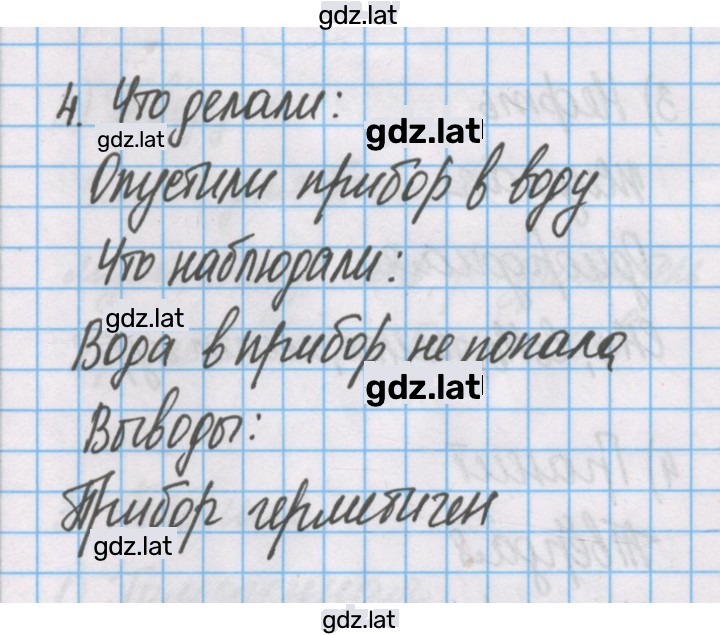 gdz.lat
4. Что делали:
gdz.lat
gdz.lat
Опустили прибор в воду
Что наблюдали:
gdz.lat
Вода в прибор не попала
gdz.lat
Выводы:
Прибор герметичен
gdz.lat
gdz.lat